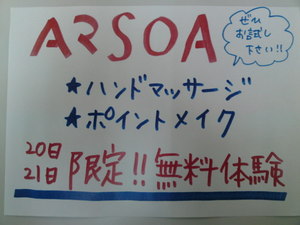 ARSOA
ぜひ
お試し
下さい!!
★ハンドマッサージ
★ポイントメイク
20日
21日
限定!!無料体験